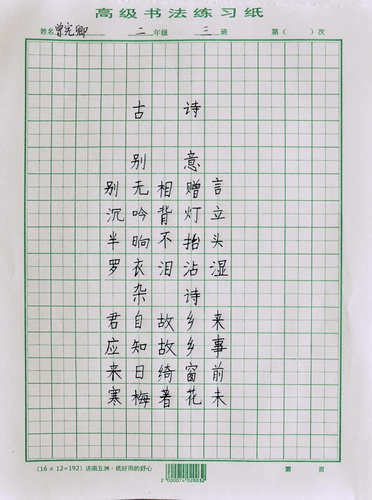 高级书法练习纸
姓名 曾宪卿 二 年级 三 班 第( )次
古 诗
别 意
别无相赠言
沉吟背灯立
半晌不抬头
罗衣泪沾湿
杂 诗
君自故乡来
应知故乡事
来日绮窗前
寒梅著花未
(16×12=192) 济南五洲·纸好用的舒心
第 页